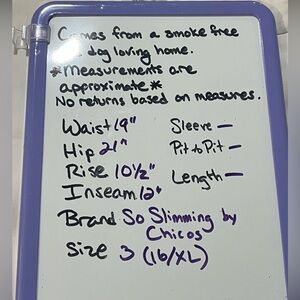 Comes from a smoke free
dog loving home.
*Measurements are
approximate*
No returns based on measures.
Waist 19" Sleeve —
Hip 21" Pit to Pit —
Rise 10½" Length —
Inseam 12"
Brand So Slimming by
Chicos
Size 3 (16/XL)